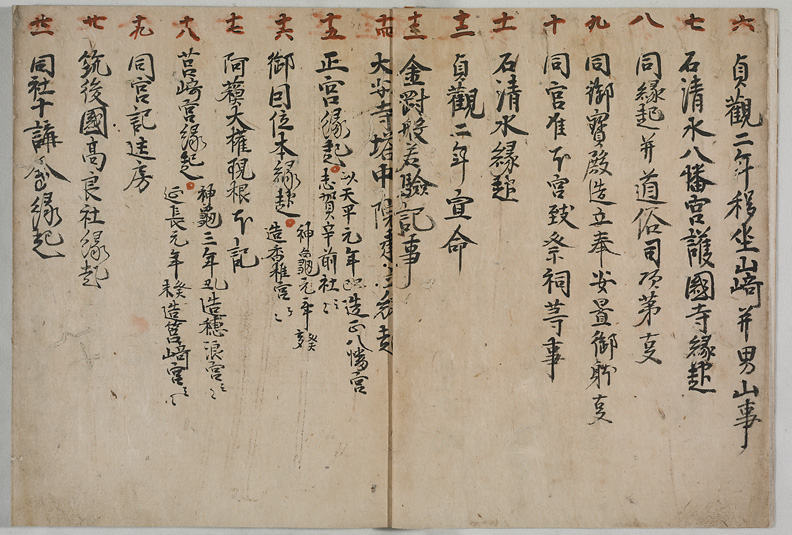 六 貞觀二年移坐山﨑并男山事
七 石清水八幡宮護國寺縁起
八 同縁起并道俗司次第事
九 同御寶殿造立奉安置御躰事
十 同宮准下宮致祭祠等事
十一 石清水縁起
十二 貞觀二年宣命
十三 金剛般若驗記事
十四 大安寺塔中院
十五 正宮縁起 以天平元年造正八幡宮
志賀 前社
十六 御因位本縁起 神龜元年癸亥
造香椎宮
十七 阿蘓大權現根本記
十八 筥﨑宮縁起 神龜三年造穗浪宮
延長元年癸未造筥﨑宮
十九 同宮記
廿 筑後國髙良社縁起
廿一 同社十講會縁起